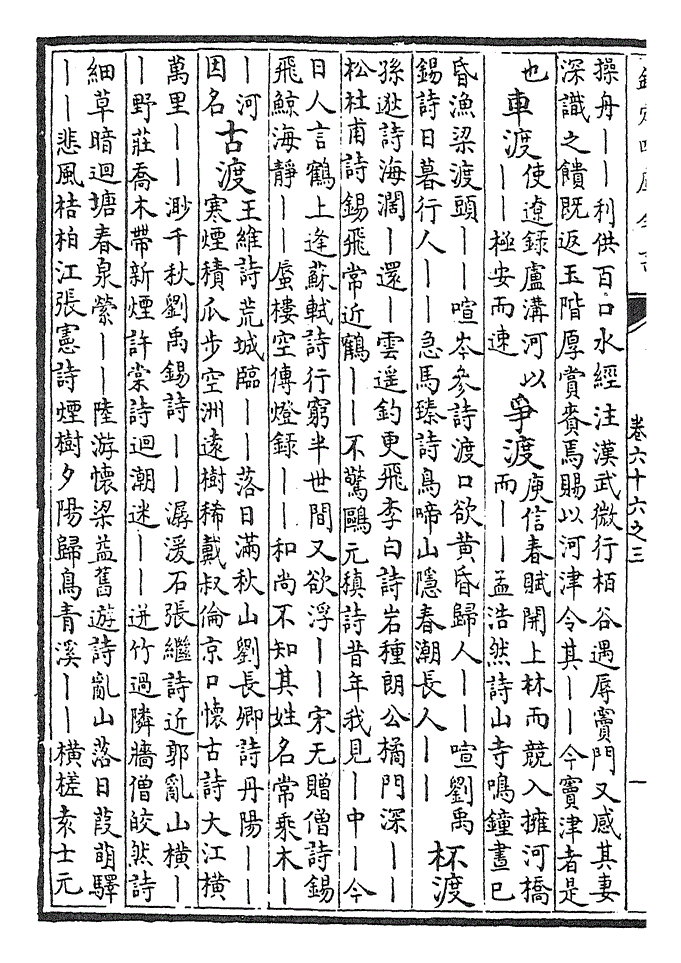 欽定四庫全書
卷六十六之三
一
操舟——利供百口水經注漢武微行栢谷遇辱竇門又感其妻
深識之饋既返玉階厚賞賚焉賜以河津令其——今竇津者是
也
車渡
使遼錄盧溝河以
——極安而速
爭渡
庾信春賦開上林而競入擁河橋
而——孟浩然詩山寺鳴鐘晝已
昏漁梁渡頭——喧岑參詩渡口欲黃昏歸人——喧劉禹
錫詩日暮行人——急馬臻詩鳥啼山隱春潮長人——
杯渡
孫逖詩海濶—還—雲遥釣更飛李白詩岩種朗公橘門深——
松杜甫詩錫飛常近鶴——不驚鷗元稹詩昔年我見—中—今
日人言鶴上逢蘇軾詩行窮半世間又欲浮——宋无贈僧詩錫
飛鯨海靜——蜃樓空傳燈錄——和尚不知其姓名常乘木——
—河
因名
古渡
王維詩荒城臨——落日滿秋山劉長卿詩丹陽——
寒煙積瓜步空洲遠樹稀戴叔倫京口懷古詩大江横
萬里——渺千秋劉禹錫詩——潺湲石張繼詩近郭亂山横—
—野莊喬木帶新煙許棠詩迴潮迷——迸竹過隣牆僧皎然詩
細草暗迴塘春泉縈——陸游懷梁益舊遊詩亂山落日葭萌驛
——悲風桔柏江張憲詩煙樹夕陽歸鳥青溪——横槎袁士元